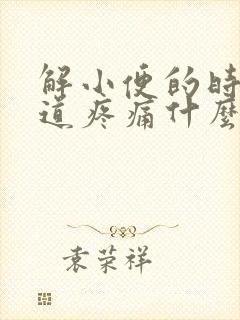 解小便的时
道疼痛什麽
袁荣祥